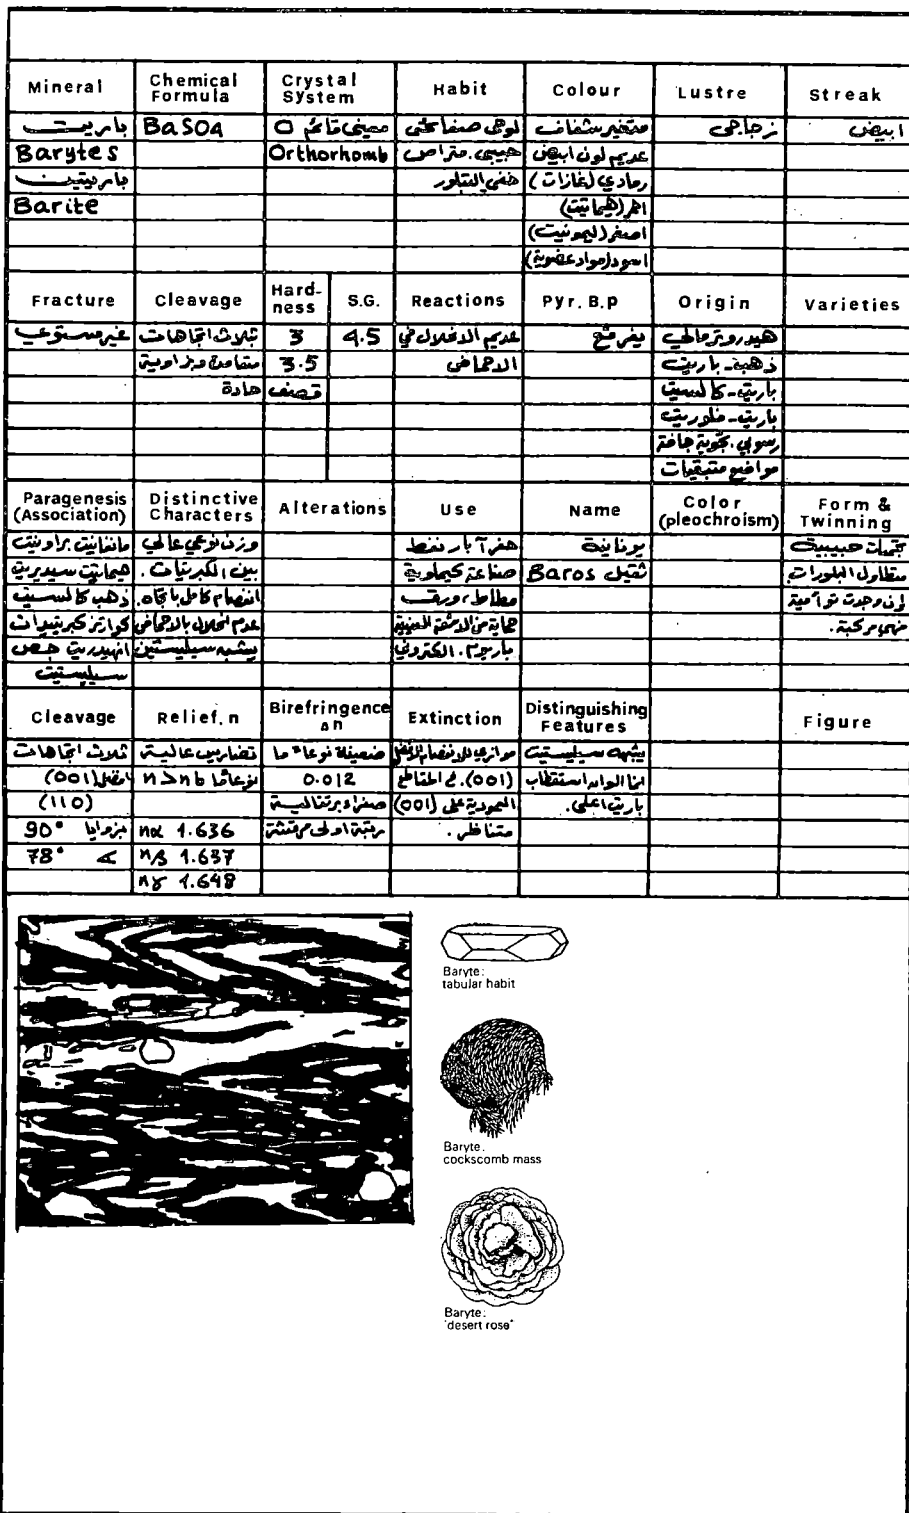 Mineral Chemical Formula Crystal System Habit Colour Lustre Streak
باريت BaSO4 معيني قائم O لوحي صفائحي متغير شفاف زجاجي ابيض
Barytes Orthorhomb حبيبي. متراص عديم لون ابيض
باريتين خفي التبلور رمادي (غازات)
Barite احمر (هيماتيت)
اصفر (ليمونيت)
اسود (مواد عضوية)
Fracture Cleavage Hardness S.G. Reactions Pyr. B.p Origin Varieties
غير مستوي ثلاث اتجاهات 3 4.5 عديم الانحلال في يفرقع هيدروترمالي
متعامدة وبزاوية 3.5 الاحماض ذهب - باريت
حادة قصف باريت - كالسيت
باريت - فلوريت
رسوبي. بحوية جافة
مواضع متبقيات
Paragenesis (Association) Distinctive Characters Alterations Use Name Color (pleochroism) Form & Twinning
مانغانيت براونيت وزن نوعي عالي حفر آبار نفط يونانية تجمعات حبيبية
هيماتيت سيديريت بين الكبريتات. صناعة كيماوية ثقيل Baros متطاول البلورات
ذهب كالسيت انفصام كامل باتجاه. مطاط، ورق إن وجدت توأمية
كوارتز كبريتيدات عدم انحلال بالاحماض حماية من الاشعة السينية فهي مركبة.
انهيدريت جص يشبه سيليستين باريوم. الكتروني
سيليستيت
Cleavage Relief. n Birefringence Δn Extinction Distinguishing Features Figure
ثلاث اتجاهات تضاريس عالية ضعيفة نوعا ما موازي للانفصام الافضل يشبه سيليستيت
افضل (001) نوعا ما n > nb 0.012 (001). في المقاطع انما الوان استقطاب
(110) صفراء برتقالية العمودية على (001) باريت اعلى.
بزوايا 90° nα 1.636 رتبة اولى متناظر.
78° nβ 1.637
nγ 1.648
Baryte:
tabular habit
Baryte.
cockscomb mass
Baryte:
'desert rose'